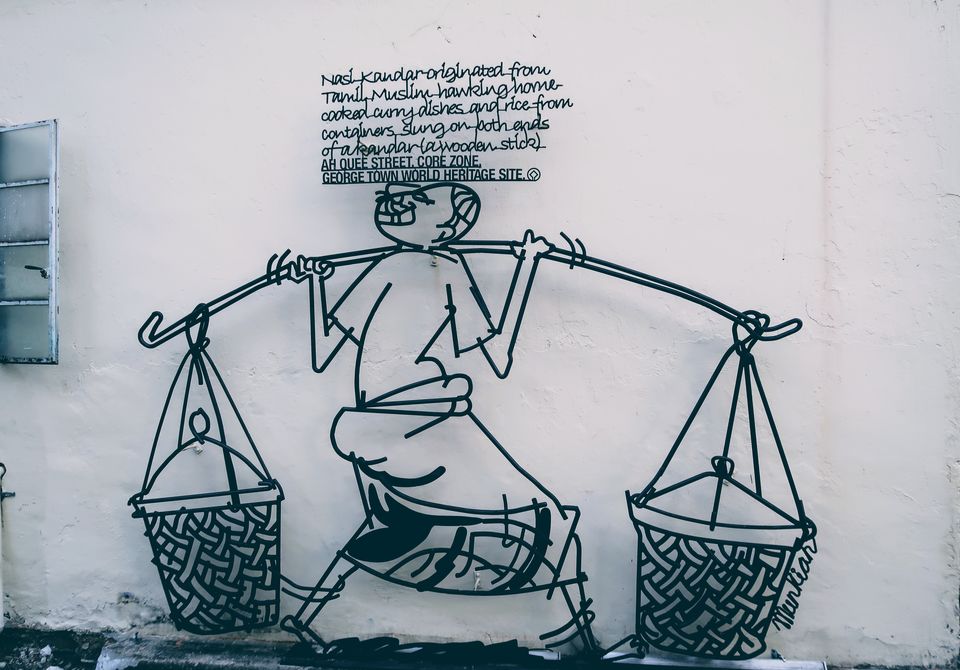 Nasi Kandar originated from
Tamil Muslim hawking home-
cooked curry dishes and rice from
containers slung on both ends
of a kandar (a wooden stick).
AH QUEE STREET, CORE ZONE,
GEORGE TOWN WORLD HERITAGE SITE.